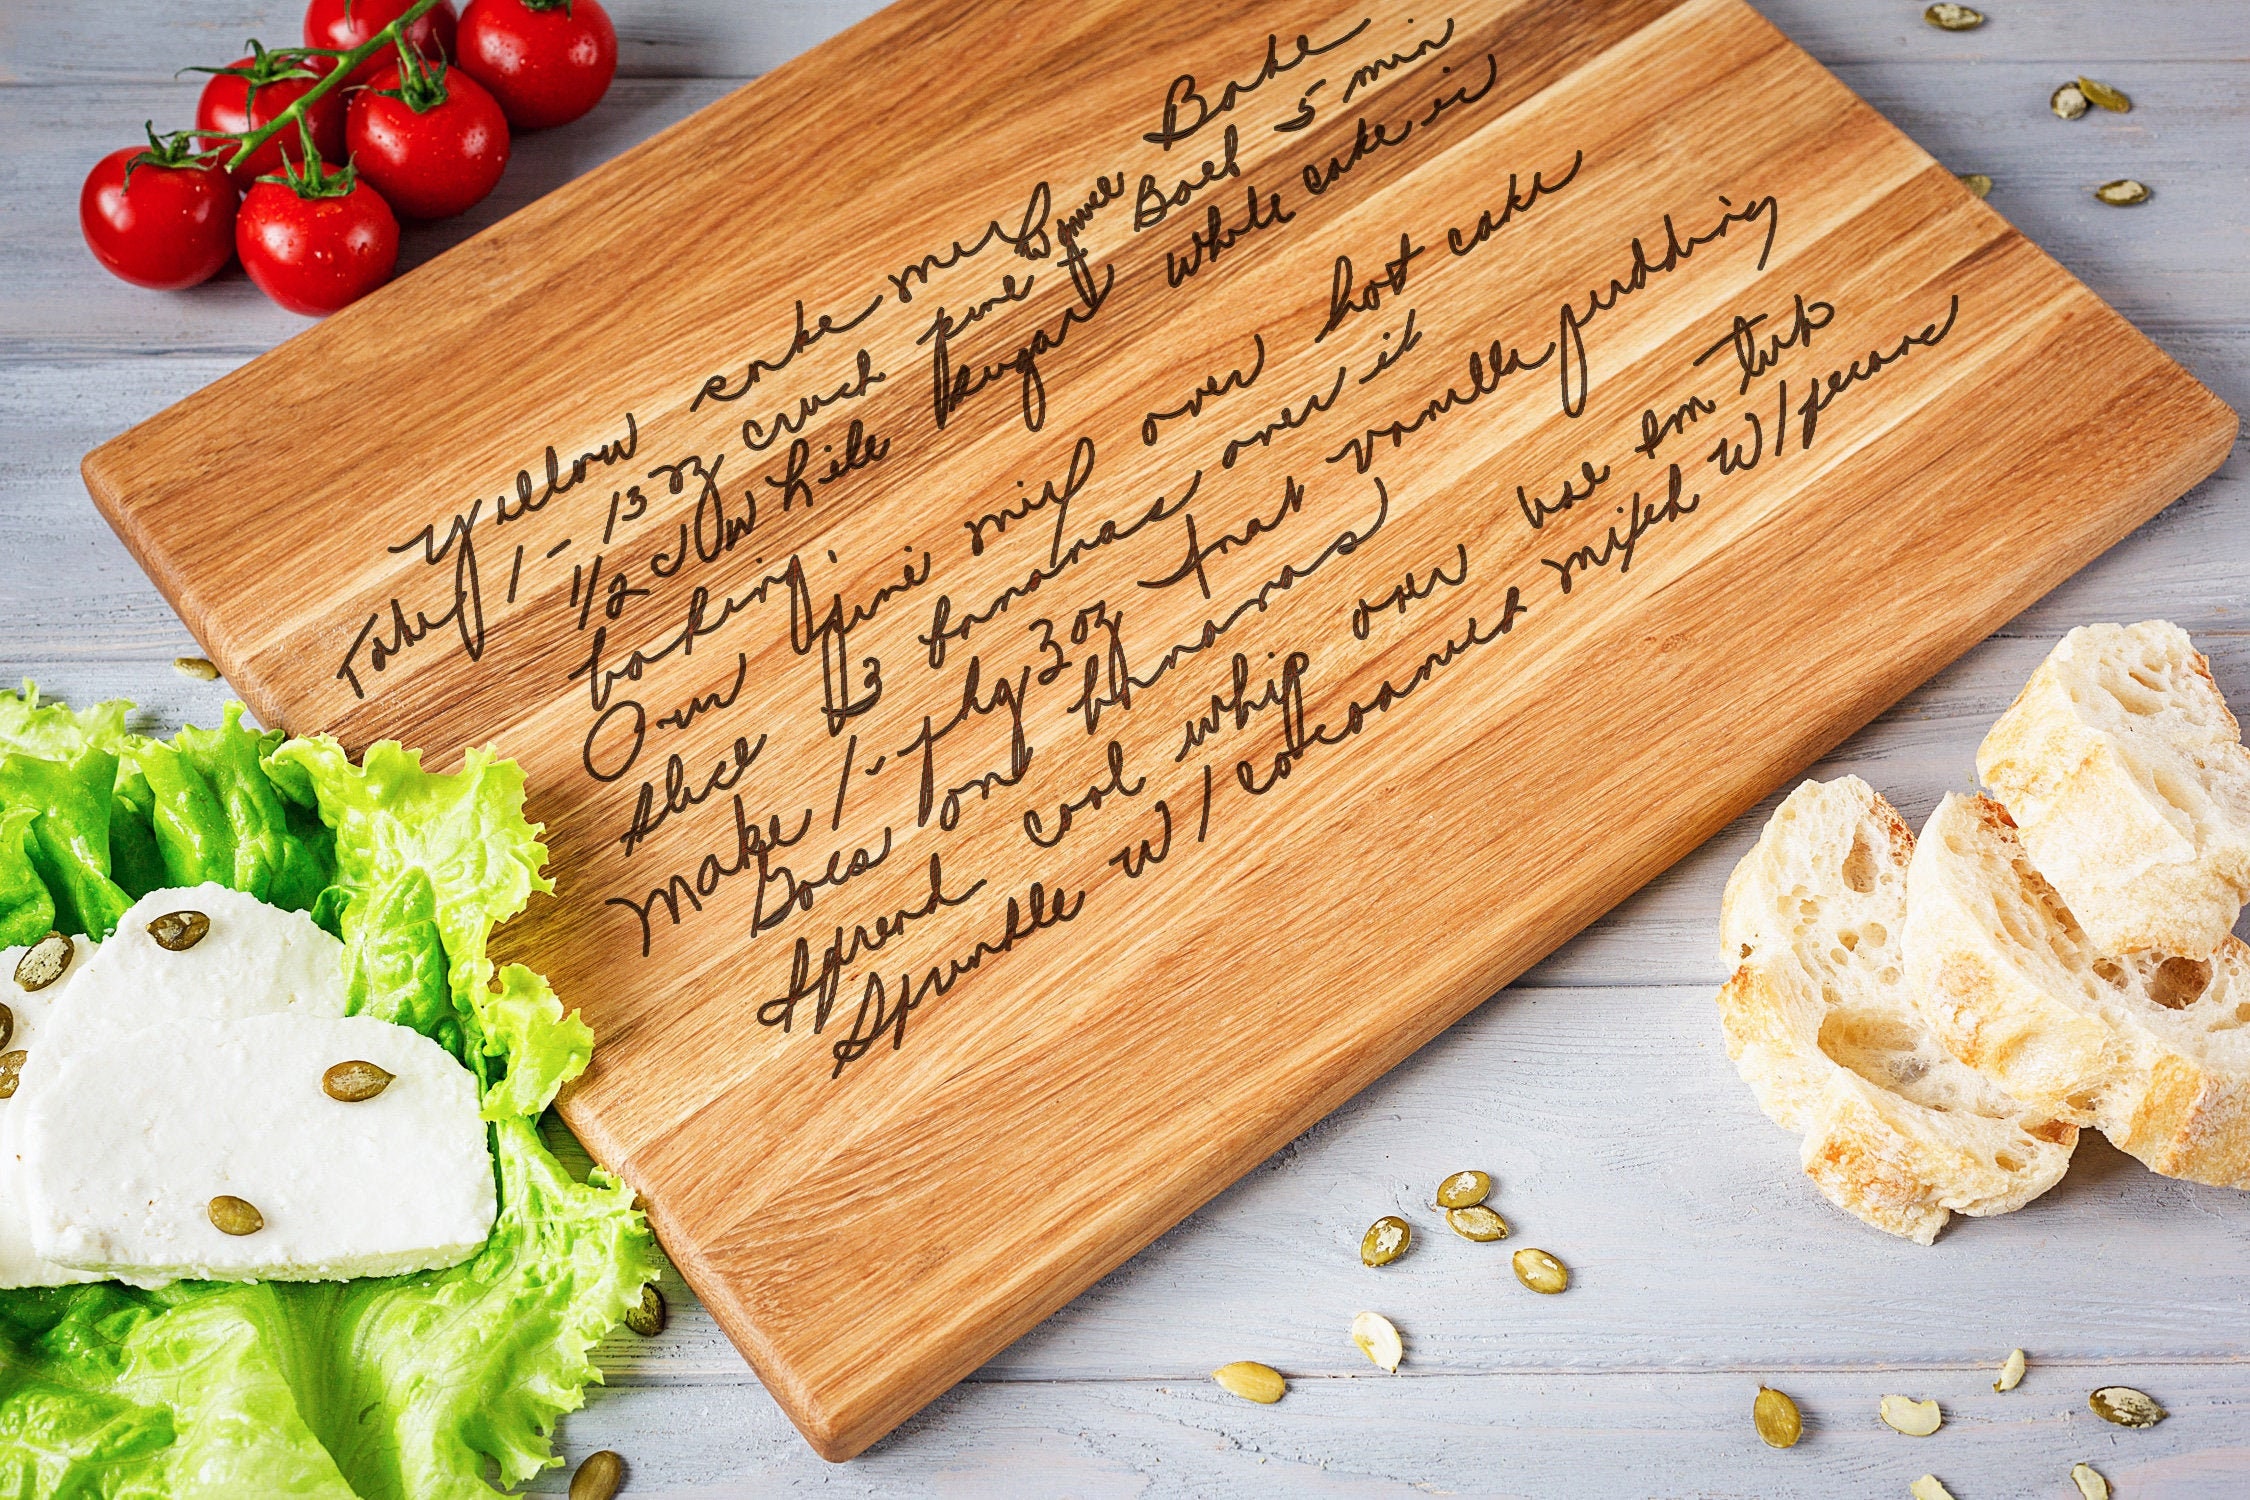 Yellow cake mix Bake
Take 1 - 13 oz crush pine & Boil 5 min
1/2 C white sugar while cake is
baking.
Our pine mix over hot cake
slice 3 bananas over it
Make 1 - pkg 3 oz inst vanilla pudding
Goes on bananas
Spread cool whip over use sm tub
Sprinkle w/ cocoanut mixed w/ pecans